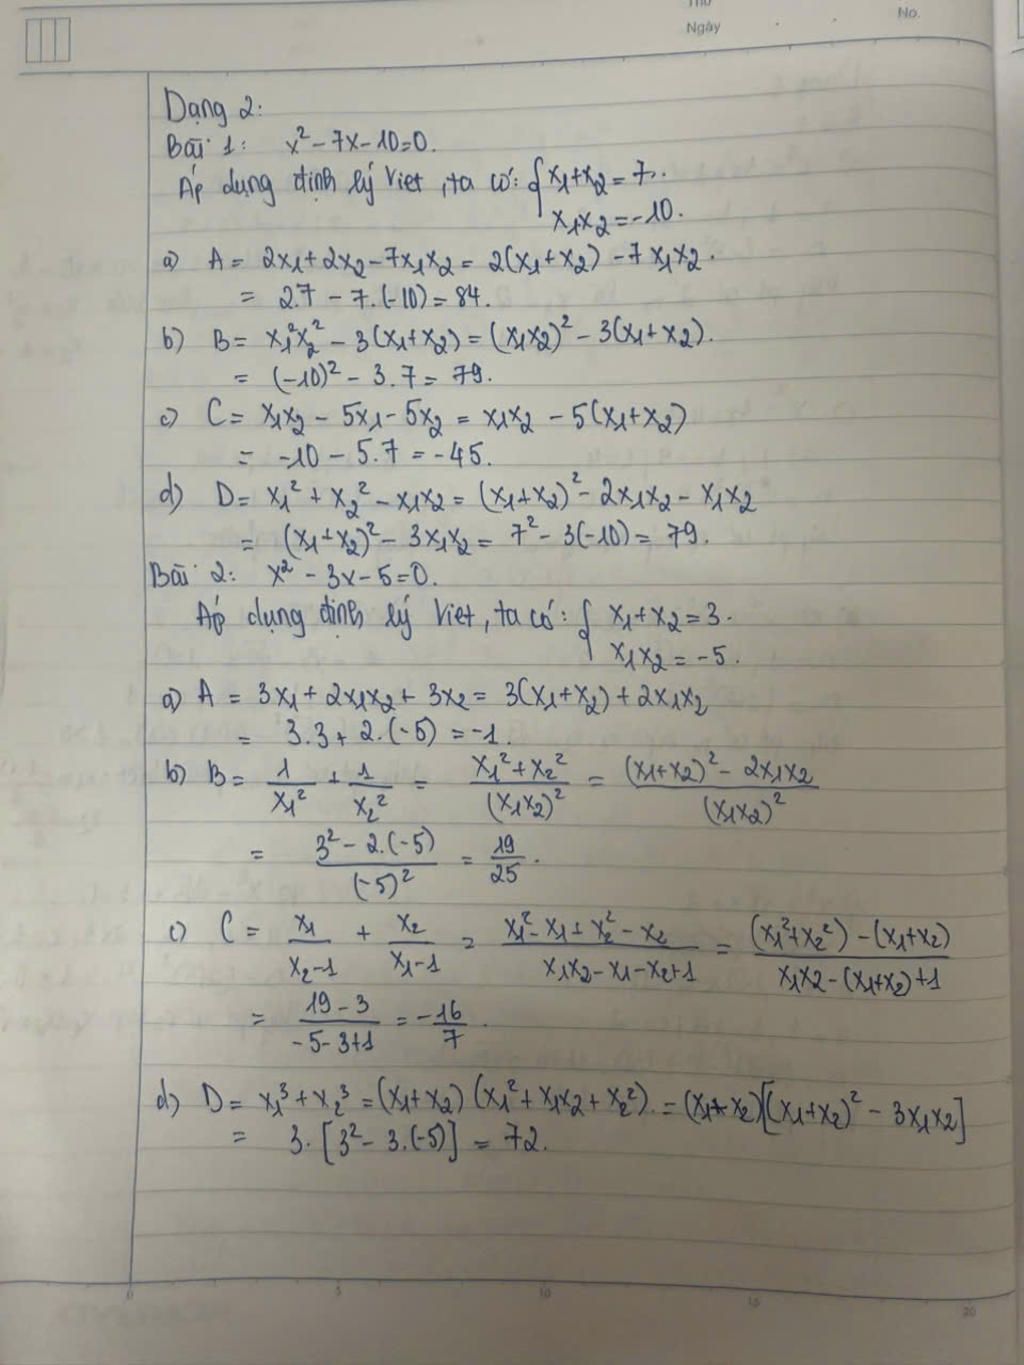 Thứ
Ngày
No.
Dạng 2:
Bài 1: x² - 7x - 10 = 0.
Áp dụng định lý Viet, ta có: { x₁ + x₂ = 7.
x₁x₂ = -10.
a) A = 2x₁ + 2x₂ - 7x₁x₂ = 2(x₁ + x₂) - 7x₁x₂.
= 2.7 - 7.(-10) = 84.
b) B = x₁²x₂² - 3(x₁ + x₂) = (x₁x₂)² - 3(x₁ + x₂).
= (-10)² - 3.7 = 79.
c) C = x₁x₂ - 5x₁ - 5x₂ = x₁x₂ - 5(x₁ + x₂)
= -10 - 5.7 = -45.
d) D = x₁² + x₂² - x₁x₂ = (x₁ + x₂)² - 2x₁x₂ - x₁x₂
= (x₁ + x₂)² - 3x₁x₂ = 7² - 3(-10) = 79.
Bài 2: x² - 3x - 5 = 0.
Áp dụng định lý Viet, ta có: { x₁ + x₂ = 3.
x₁x₂ = -5.
a) A = 3x₁ + 2x₁x₂ + 3x₂ = 3(x₁ + x₂) + 2x₁x₂
= 3.3 + 2.(-5) = -1.
b) B = 1/x₁² + 1/x₂² = (x₁² + x₂²)/(x₁x₂)² = ((x₁ + x₂)² - 2x₁x₂)/(x₁x₂)²
= (3² - 2.(-5))/(-5)² = 19/25.
c) C = x₁/(x₂ - 1) + x₂/(x₁ - 1) = (x₁² - x₁ + x₂² - x₂)/(x₁x₂ - x₁ - x₂ + 1) = ((x₁² + x₂²) - (x₁ + x₂))/(x₁x₂ - (x₁ + x₂) + 1)
= (19 - 3)/(-5 - 3 + 1) = -16/7.
d) D = x₁³ + x₂³ = (x₁ + x₂)(x₁² + x₁x₂ + x₂²). = (x₁ + x₂)[(x₁ + x₂)² - 3x₁x₂]
= 3.[3² - 3.(-5)] = 72.
0 5 10 15 20